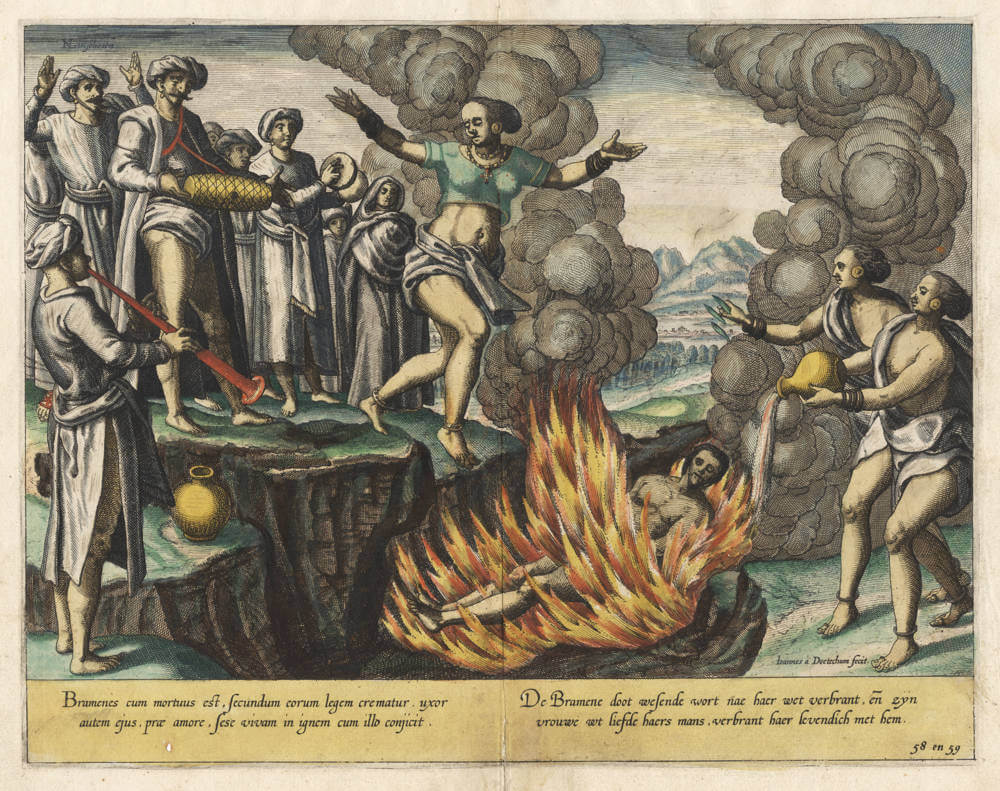 Ioannes à Doetechum fecit.
Bramenes cum mortuus est, secundum eorum legem crematur, uxor
autem ejus, præ amore, sese vivam in ignem cum illo conjicit.
De Bramene doot wesende wort nae haer wet verbrant, en̄ zyn
vrouwe wt liefde haers mans, verbrant haer levendich met hem.
58 en 59